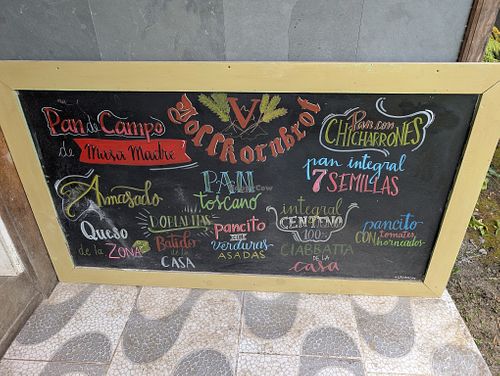 Pan de Campo
de Masa Madre
Vollkornbrot
Pan con
CHICHARRONES
Amasado
PAN
toscano
pan integral
7 SEMILLAS
Queso
de la ZONA
DOBLADITAS
Batido de la
CASA
pancito
de
verduras
ASADAS
integral
CENTENO
100%
CIABBATTA
DE LA
casa
pancito
CON tomates
horneados
HappyCow